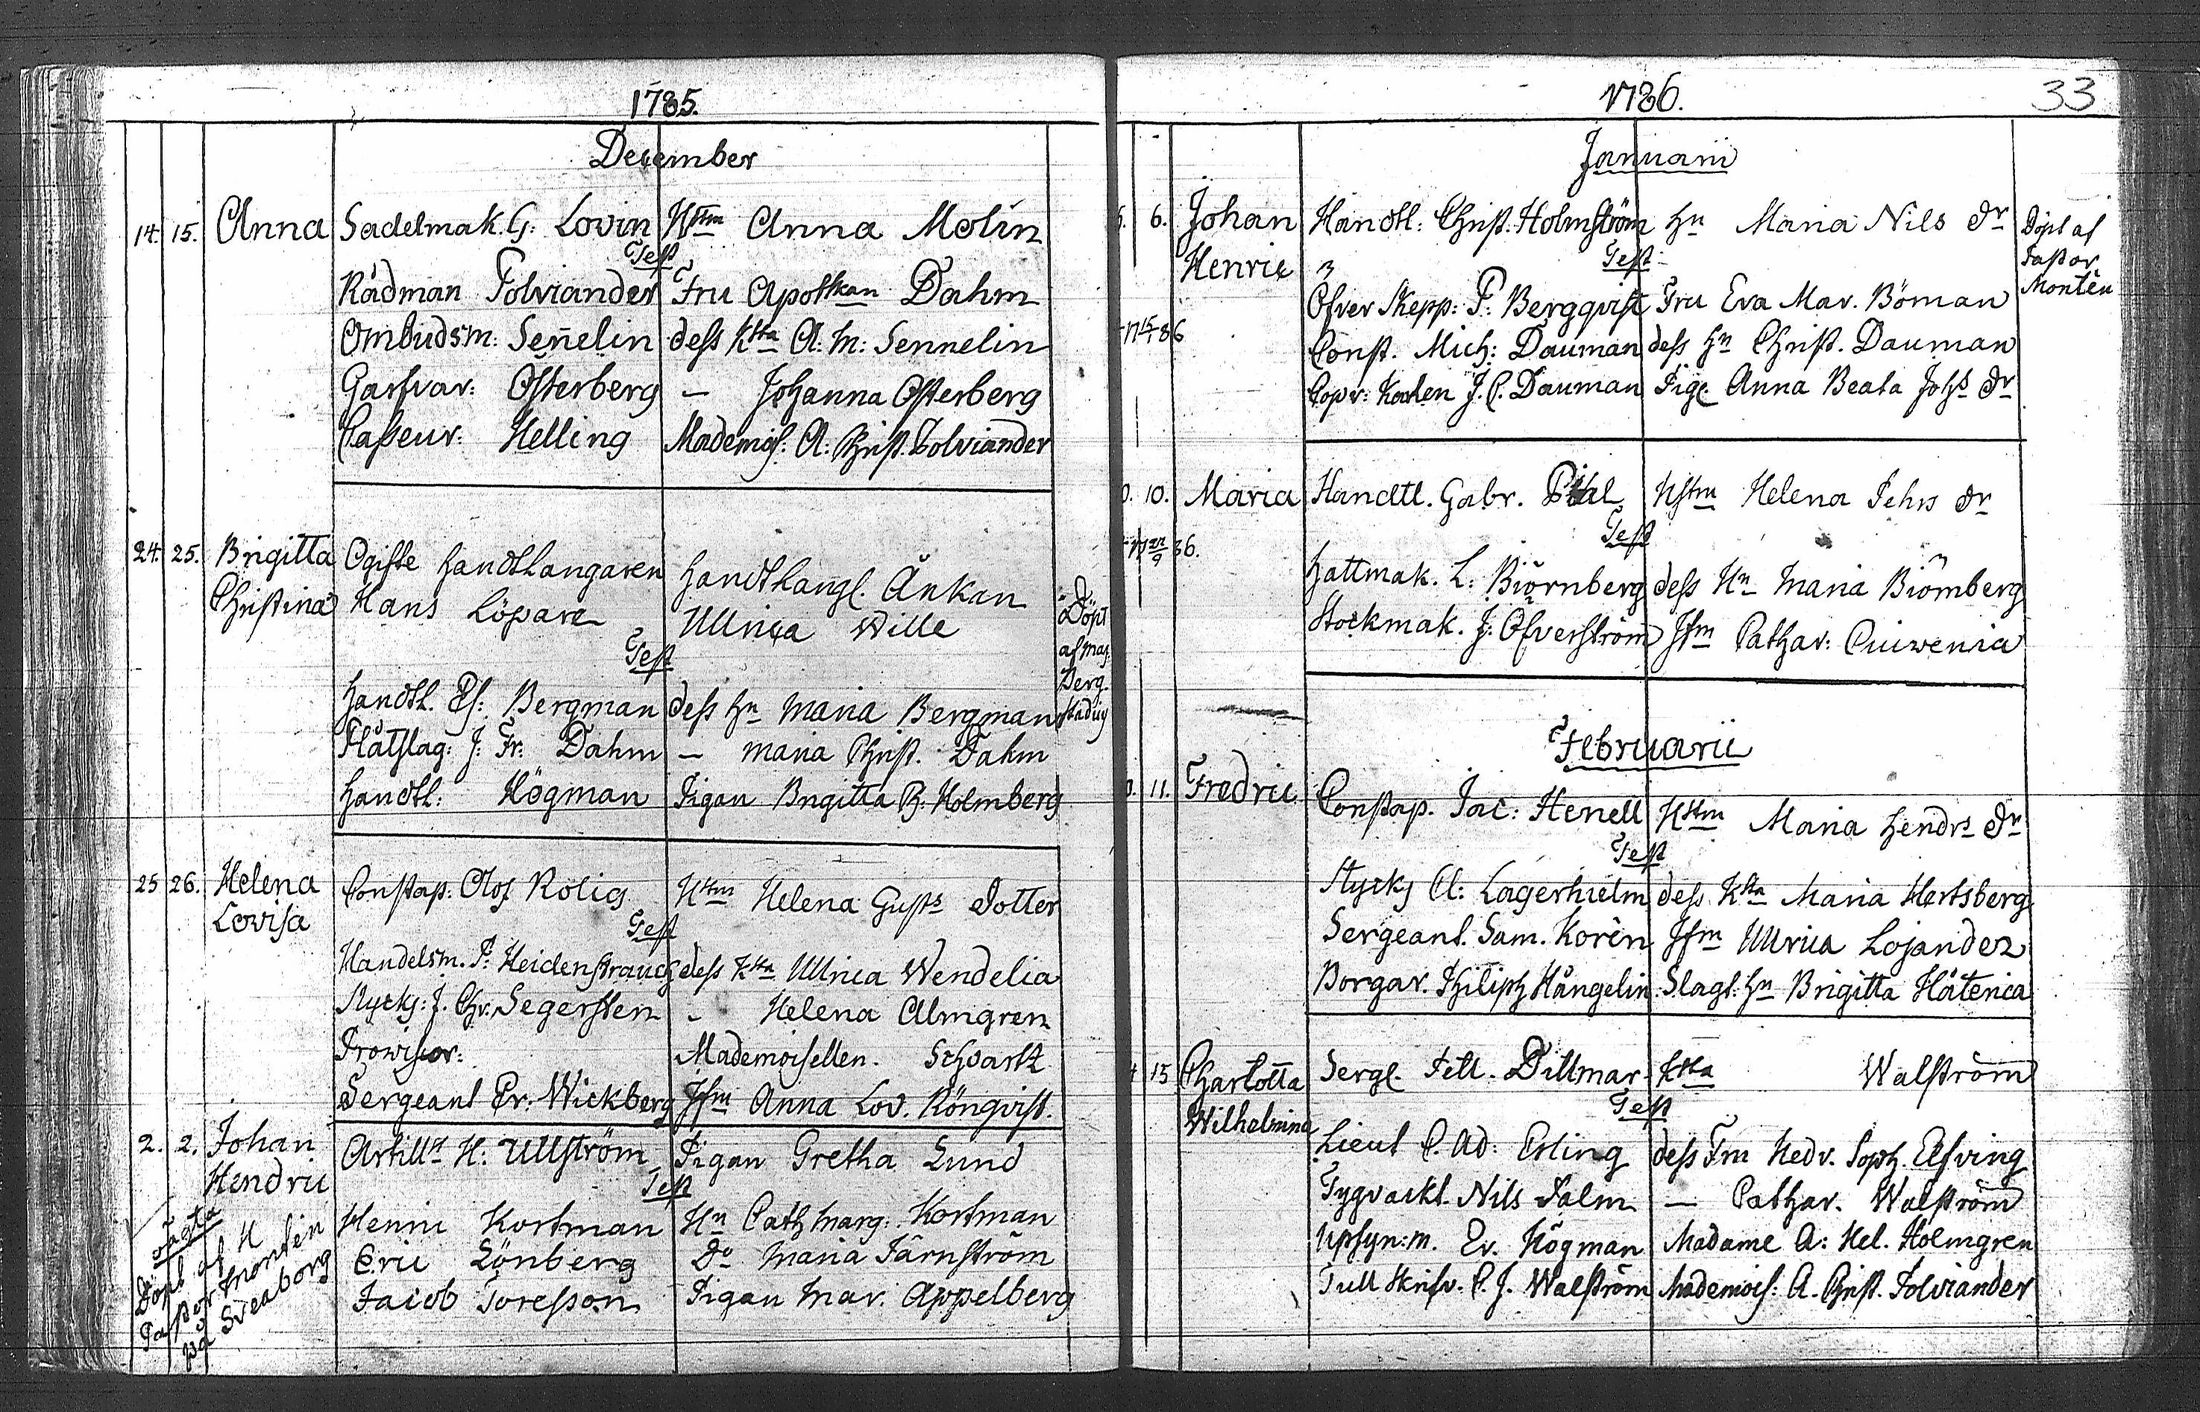 1785.
December
14. 15. Anna Sadelmak. G: Lovin Hstm Anna Molin
Test
Rådman Tolviander Fru Apothkan Dahm
Ombudsm: Sen̄elin dess Kta A: M: Sennelin
Garfvar: Osterberg — Johanna Osterberg
Casseur: Helling Mademois: A: Christ. Tolviander
24. 25. Brigitta Ogifte handtlangaren handtlangl. Änkan
Christina Hans Löpare Ullrica Wille
Döpt
af Mag.
Berg-
stadius
Test
handl. Es: Bergman dess hn Maria Bergman
Flätslag: J: Fr: Dahm — Maria Christ. Dahm
handtl: Högman Pigan Brigitta B: Holmberg
25 26. Helena Constap: Olof Rolig Hstm Helena Gusts Dotter
Lovisa
Test
Handelsm. P: Heidenstrauch dess Kta Ullrica Wendelia
Styckj: J. Chr: Segersten - Helena Almgren
Provisor: Mademoisellen. Schvartz
Sergeant Er: Wickberg Jfm Anna Lov. Rönqvist.
2. 2. Johan Artillr H: Ullström Pigan Gretha Lund
Hendric
Test
Henric Kortman Hn Cath Marg: Kortman
Eric Lönberg Do Maria Järnström
Jacob Toresson Pigan Mar: Appelberg
oägta
Döpt af H
Pastor Montin
på Sveaborg
1786.
33
Januarii
6. Johan Handtl: Christ. Holmström hn Maria Nils dr
Henric
Döpt af
Pastor
Montén
Test
Öfver Skepp: P: Bergqvist Fru Eva Mar. Böman
Const. Mich: Dauman dess hn Christ. Dauman
Copv: Karlen J. C. Dauman Pige Anna Beata Johs dr
10. Maria Handtl. Gabr. Pihl Hstm Helena Jehrs dr
Test
hattmak. L: Biörnberg dess Hn Maria Biörnberg
Stockmak. J: Öfverström Jfm Cathar: Cuiwenia
Februarii
11. Fredric Constap. Jac: Henell Hstm Maria hendrs dr
Test
Styckj A: Lagerhielm dess Kta Maria Hertsberg
Sergeant. Sam. Korén Jfm Ullrica Lojander
Borgar. Philiph Hångelin Slagt: hn Brigitta Hätenia
15 Charlotta Sergt. Fett. Dillmar Kta Walström
Wilhelmina
Test
Lieut C. Ad: Erling dess Fru Hedv. Soph. Elfving
Tygvackt. Nils Palm — Cathar. Walström
Upsyn:m. Er. Högman Madame A: Hel. Holmgren
Tull Skrifv. C. J. Walström Mademois: A. Christ. Tolviander